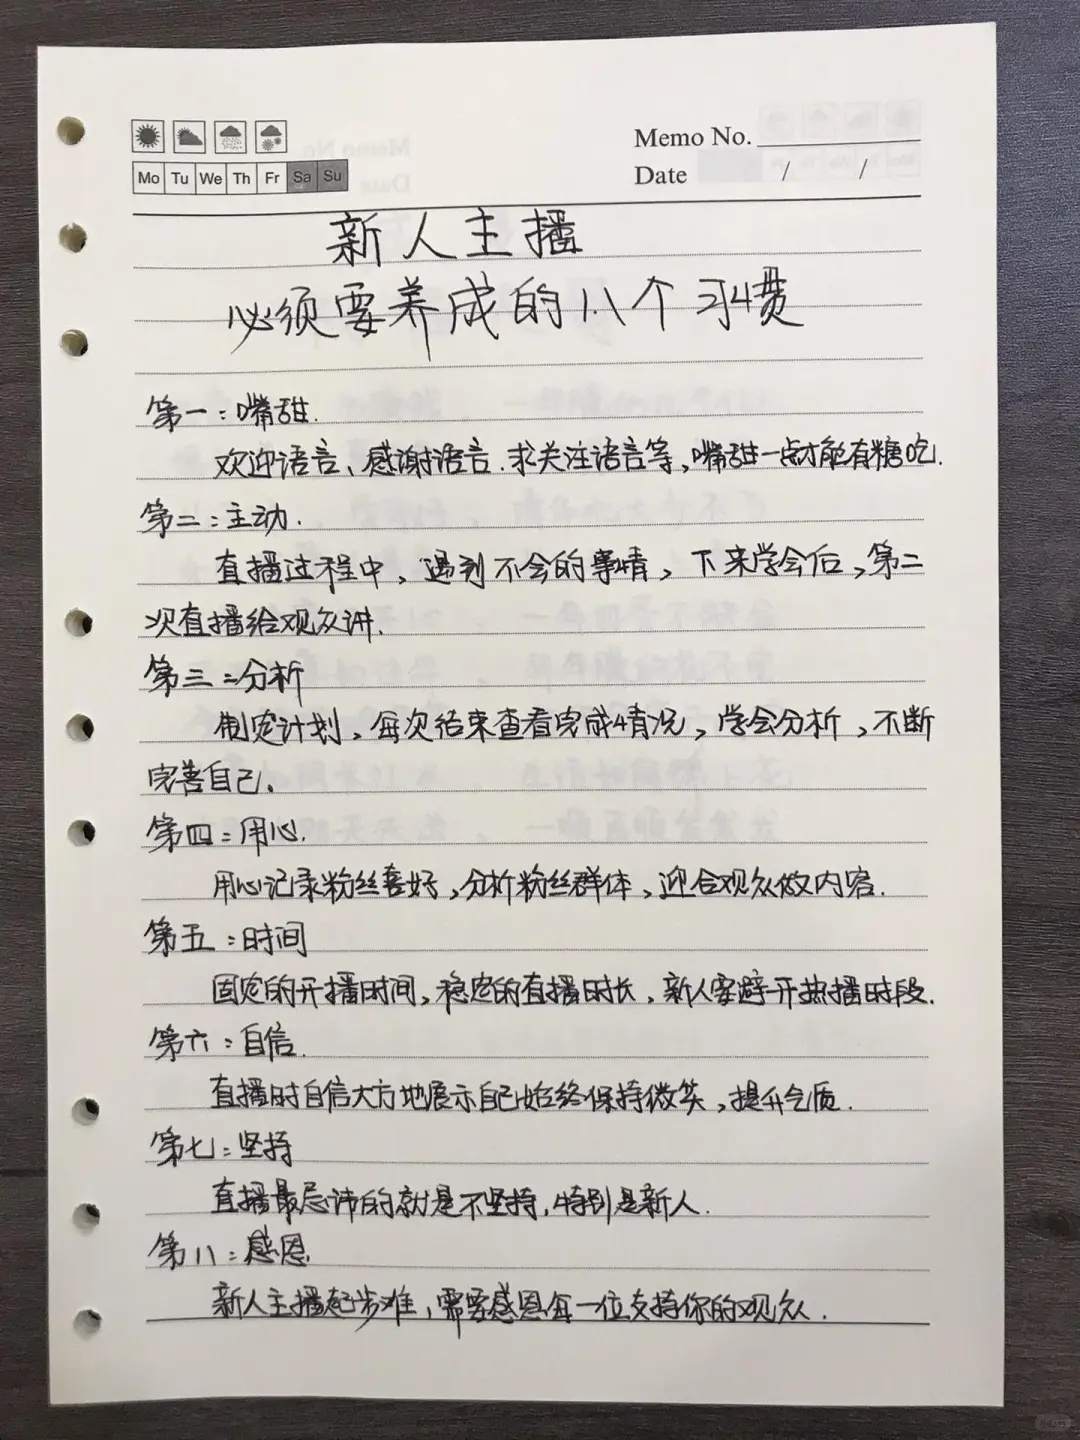 Memo No.
Mo Tu We Th Fr Sa Su
Date / /
新人主播
必须要养成的八个习惯
第一：嘴甜.
欢迎语言、感谢语言.求关注语言等，嘴甜一点才能有糖吃.
第二：主动.
直播过程中，遇到不会的事情，下来学会后，第二
次直播给观众讲.
第三：分析
制定计划，每次结束查看完成情况，学会分析，不断
完善自己。
第四：用心.
用心记录粉丝喜好，分析粉丝群体，迎合观众做内容.
第五：时间
固定的开播时间，稳定的直播时长，新人要避开热播时段.
第六：自信.
直播时自信大方地展示自己始终保持微笑，提升气质.
第七：坚持
直播最忌讳的就是不坚持，特别是新人.
第八：感恩
新人主播起步难，需要感恩每一位支持你的观众.